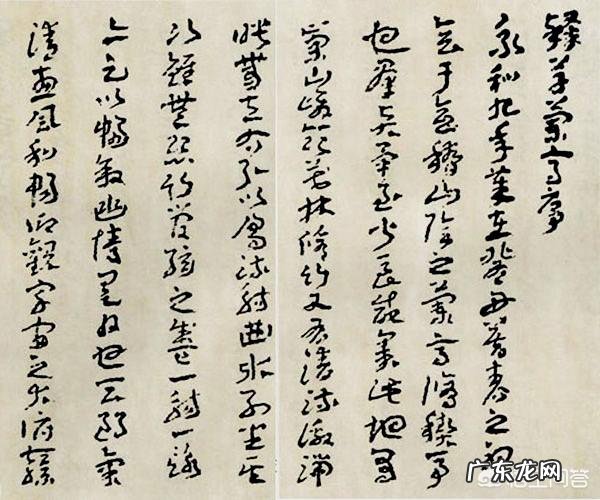 蘭亭序
永和九年歲在癸丑暮春之初
會于會稽山陰之蘭亭脩稧事
也羣賢畢至少長咸集此地有
崇山峻領茂林脩竹又有清流激湍
映帶左右引以為流觴曲水列坐其
次雖無絲竹管弦之盛一觴一詠
亦足以暢敘幽情是日也天朗氣
清惠風和暢仰觀宇宙之大俯察
广东龙网